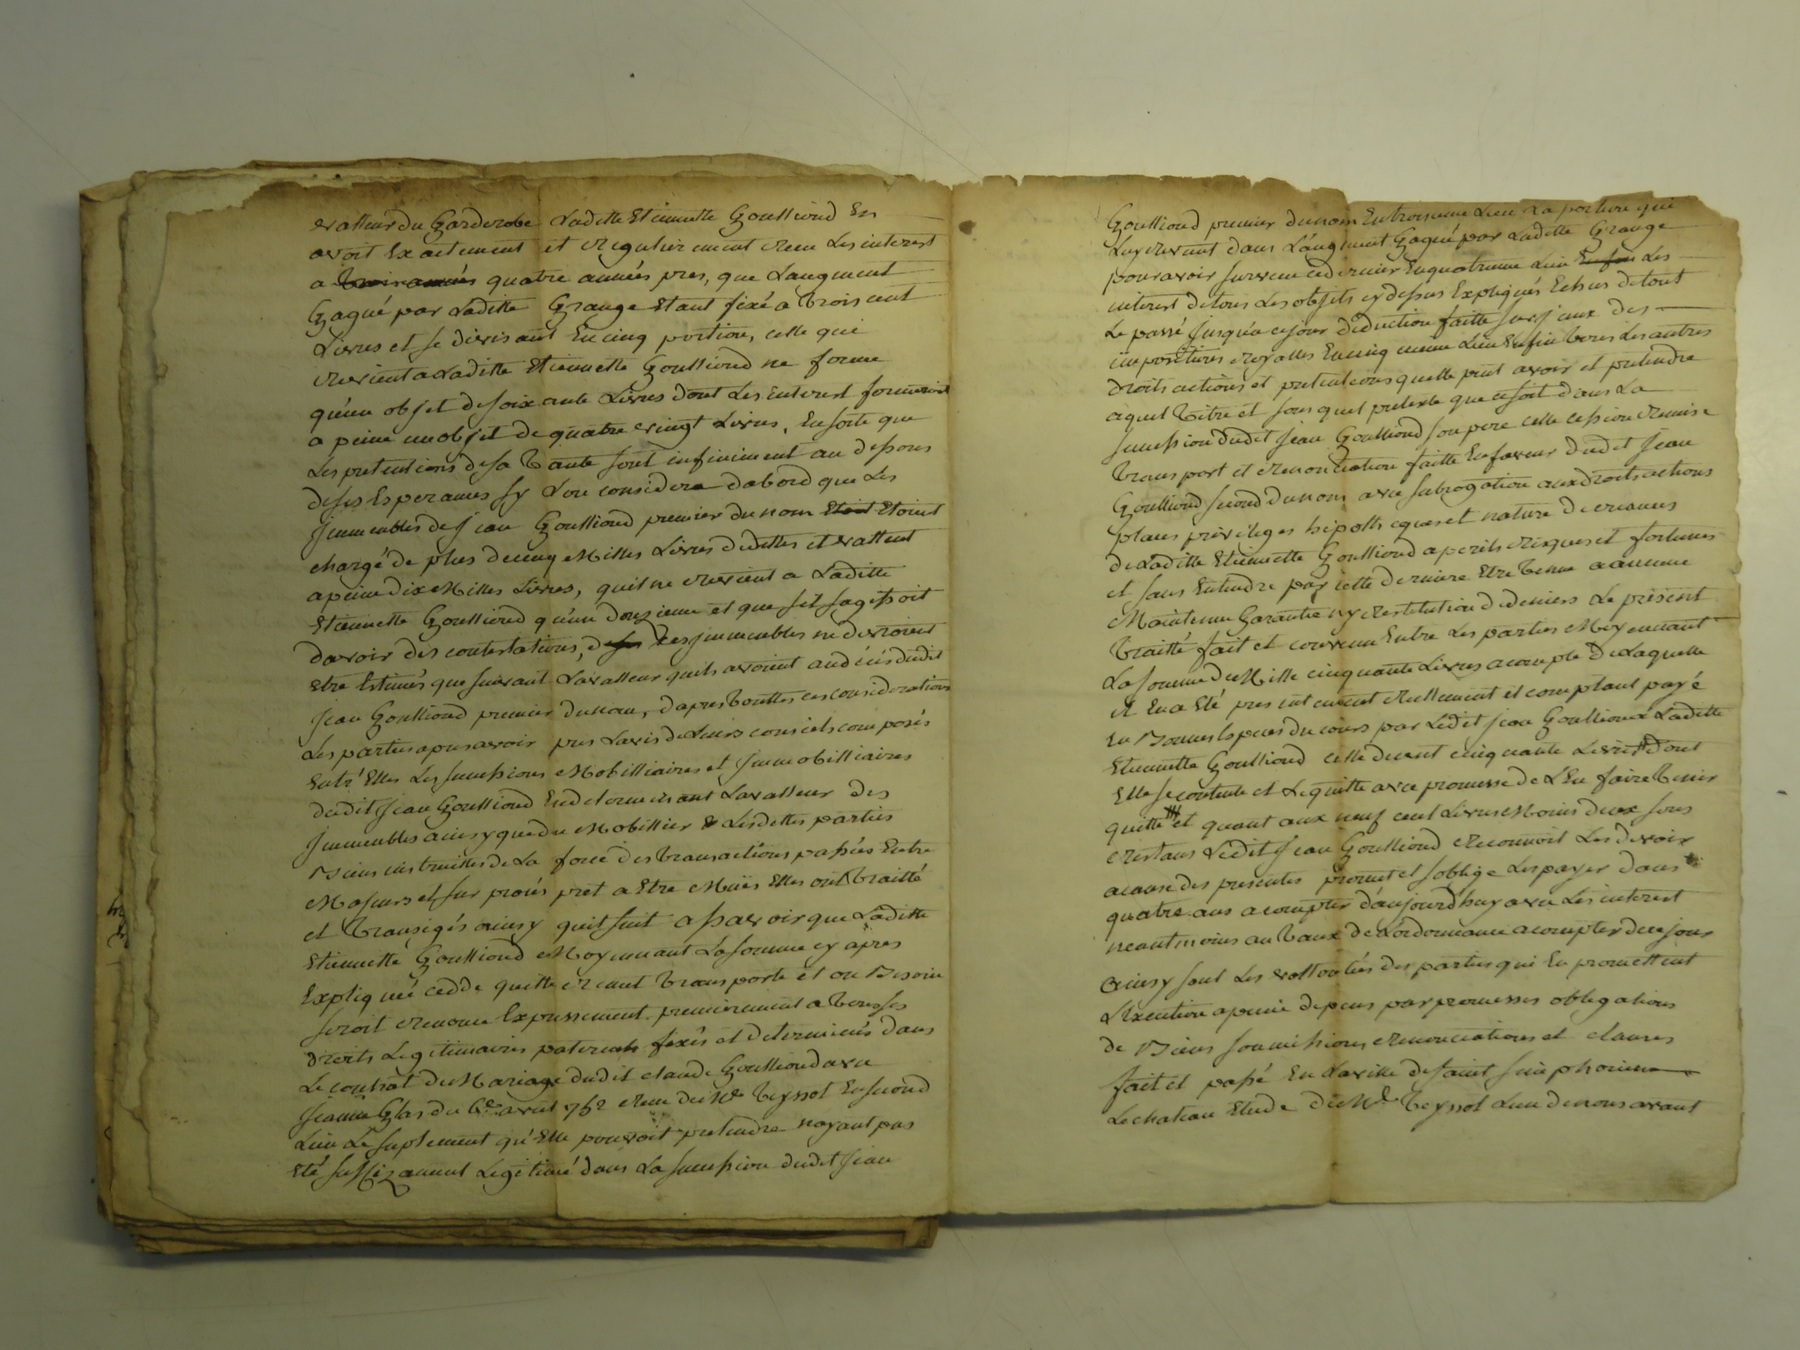 valleur du Garderobe Laditte Etiennette Goullioud En
avoit Exactement et Regulierement Receu Les interest
a trois années quatre années pres, que Laugment
Gagné par Laditte Grange Etant fixé a trois cent
Livres et se divisant En cinq portions, celle qui
Revient a Laditte Etiennette Goullioud ne forme
qu'un objet de soixante Livres dont Les interest formeroit
a peine un objet de quatre vingt Livres, En sorte que
Les pretentions de sa tante sont infiniment au dessous
de ses Esperances sy Lon considere dabord que Les
Immeubles de Jean Goullioud premier du nom Etoient
chargé de plus de cinq Milles Livres de dettes et vallent
a peine dix Milles Livres, quil ne Revient a Laditte
Etiennette Goullioud qu'un douzieme et que sil sagissoit
davoir des contestations, des Immeubles ne devroient
Etre Estimés que suivant La valleur quils avoient au décés dudit
Jean Goullioud premier du nom, dapres touttes ces considerations
Les parties apres avoir pris Lavis de Leurs conseils composés
Entr'Elles Les successions Mobilliaires et Immobilliaires
dudit Jean Goullioud En determinant La valleur des
Immeubles ainsy que du Mobillier & Lesdittes parties
Bien instruittes de La force des transactions passées Entre
Majeurs et sur procés pret a Etre Mües Elles ont traitté
et transigés ainsy quil suit a sçavoir que Laditte
Etiennette Goullioud Moyennant La somme cy apres
Expliquée cedde quitte Remet transporte et ou Besoin
seroit Renonce Expressement premierement a tous ses
droits Legitimaires paternels fixés et determinés dans
Le contrat de Mariage dudit claude Goullioud avec
Jeanne Glas du 6e avril 1762 Receu de Me Teyssot En second
Lieu Le suplement qu'Elle pouvoit pretendre nayant pas
Eté suffizamment Legitimé dans La succession dudit Jean
Goullioud premier du nom En troisieme Lieu La portion qui
Luy Revient dans Laugment Gagné par Laditte Grange
pour avoir survecu ce dernier En quatrieme Lieu Enfin Les
interest de tous Les objets cy dessus Expliqués Echus de tout
Le passé Jusqu'a ce jour deduction faitte sur iceux des
impositions Royalles En cinquieme Lieu Enfin tous Les autres
droits actions et pretentions quelle peut avoir et pretendre
a quel titre et sous quel pretexte que ce soit dans La
succession dudit Jean Goullioud son pere cette cession Remise
transport et Renonciation faitte En faveur dudit Jean
Goullioud second du nom avec subrogation aux droits actions
places privileges hipotheques et nature de creances
de Laditte Etiennette Goullioud a perils Risques et fortunes
et sans Entendre par cette derniere Etre tenue a aucune
Maintenue Garantie ny Restitution de deniers Le présent
traitté fait et convenu Entre Les parties Moyennant
La somme de Mille cinquante Livres a compte de Laquelle
il En a Eté presentement Reellement et comptant payé
En Bonnes Especes du cours par Ledit Jean Goullioud a Laditte
Etiennette Goullioud celle de cent cinquante Livres dont
Elle se contente et Le quitte avec promesse de L'En faire tenir
quitte et quant aux neuf cent Livres Moins deux sous
Restans Ledit Jean Goullioud Reconnoit Les devoir
a cause des presentes promet et soblige Les payer dans
quatre ans a compter daujourd'huy avec Les interest
neantmoins au taux de Lordonnance a compter de ce jour
Ainsy sont Les vollontés des parties qui En promettent
Lexecution a peine depens par promesses obligations
de Biens soumissions Renonciations et clauses
fait et passé En La ville de saint simphorien
Le chateau Etude de Me Teyssot Lun de nous avant